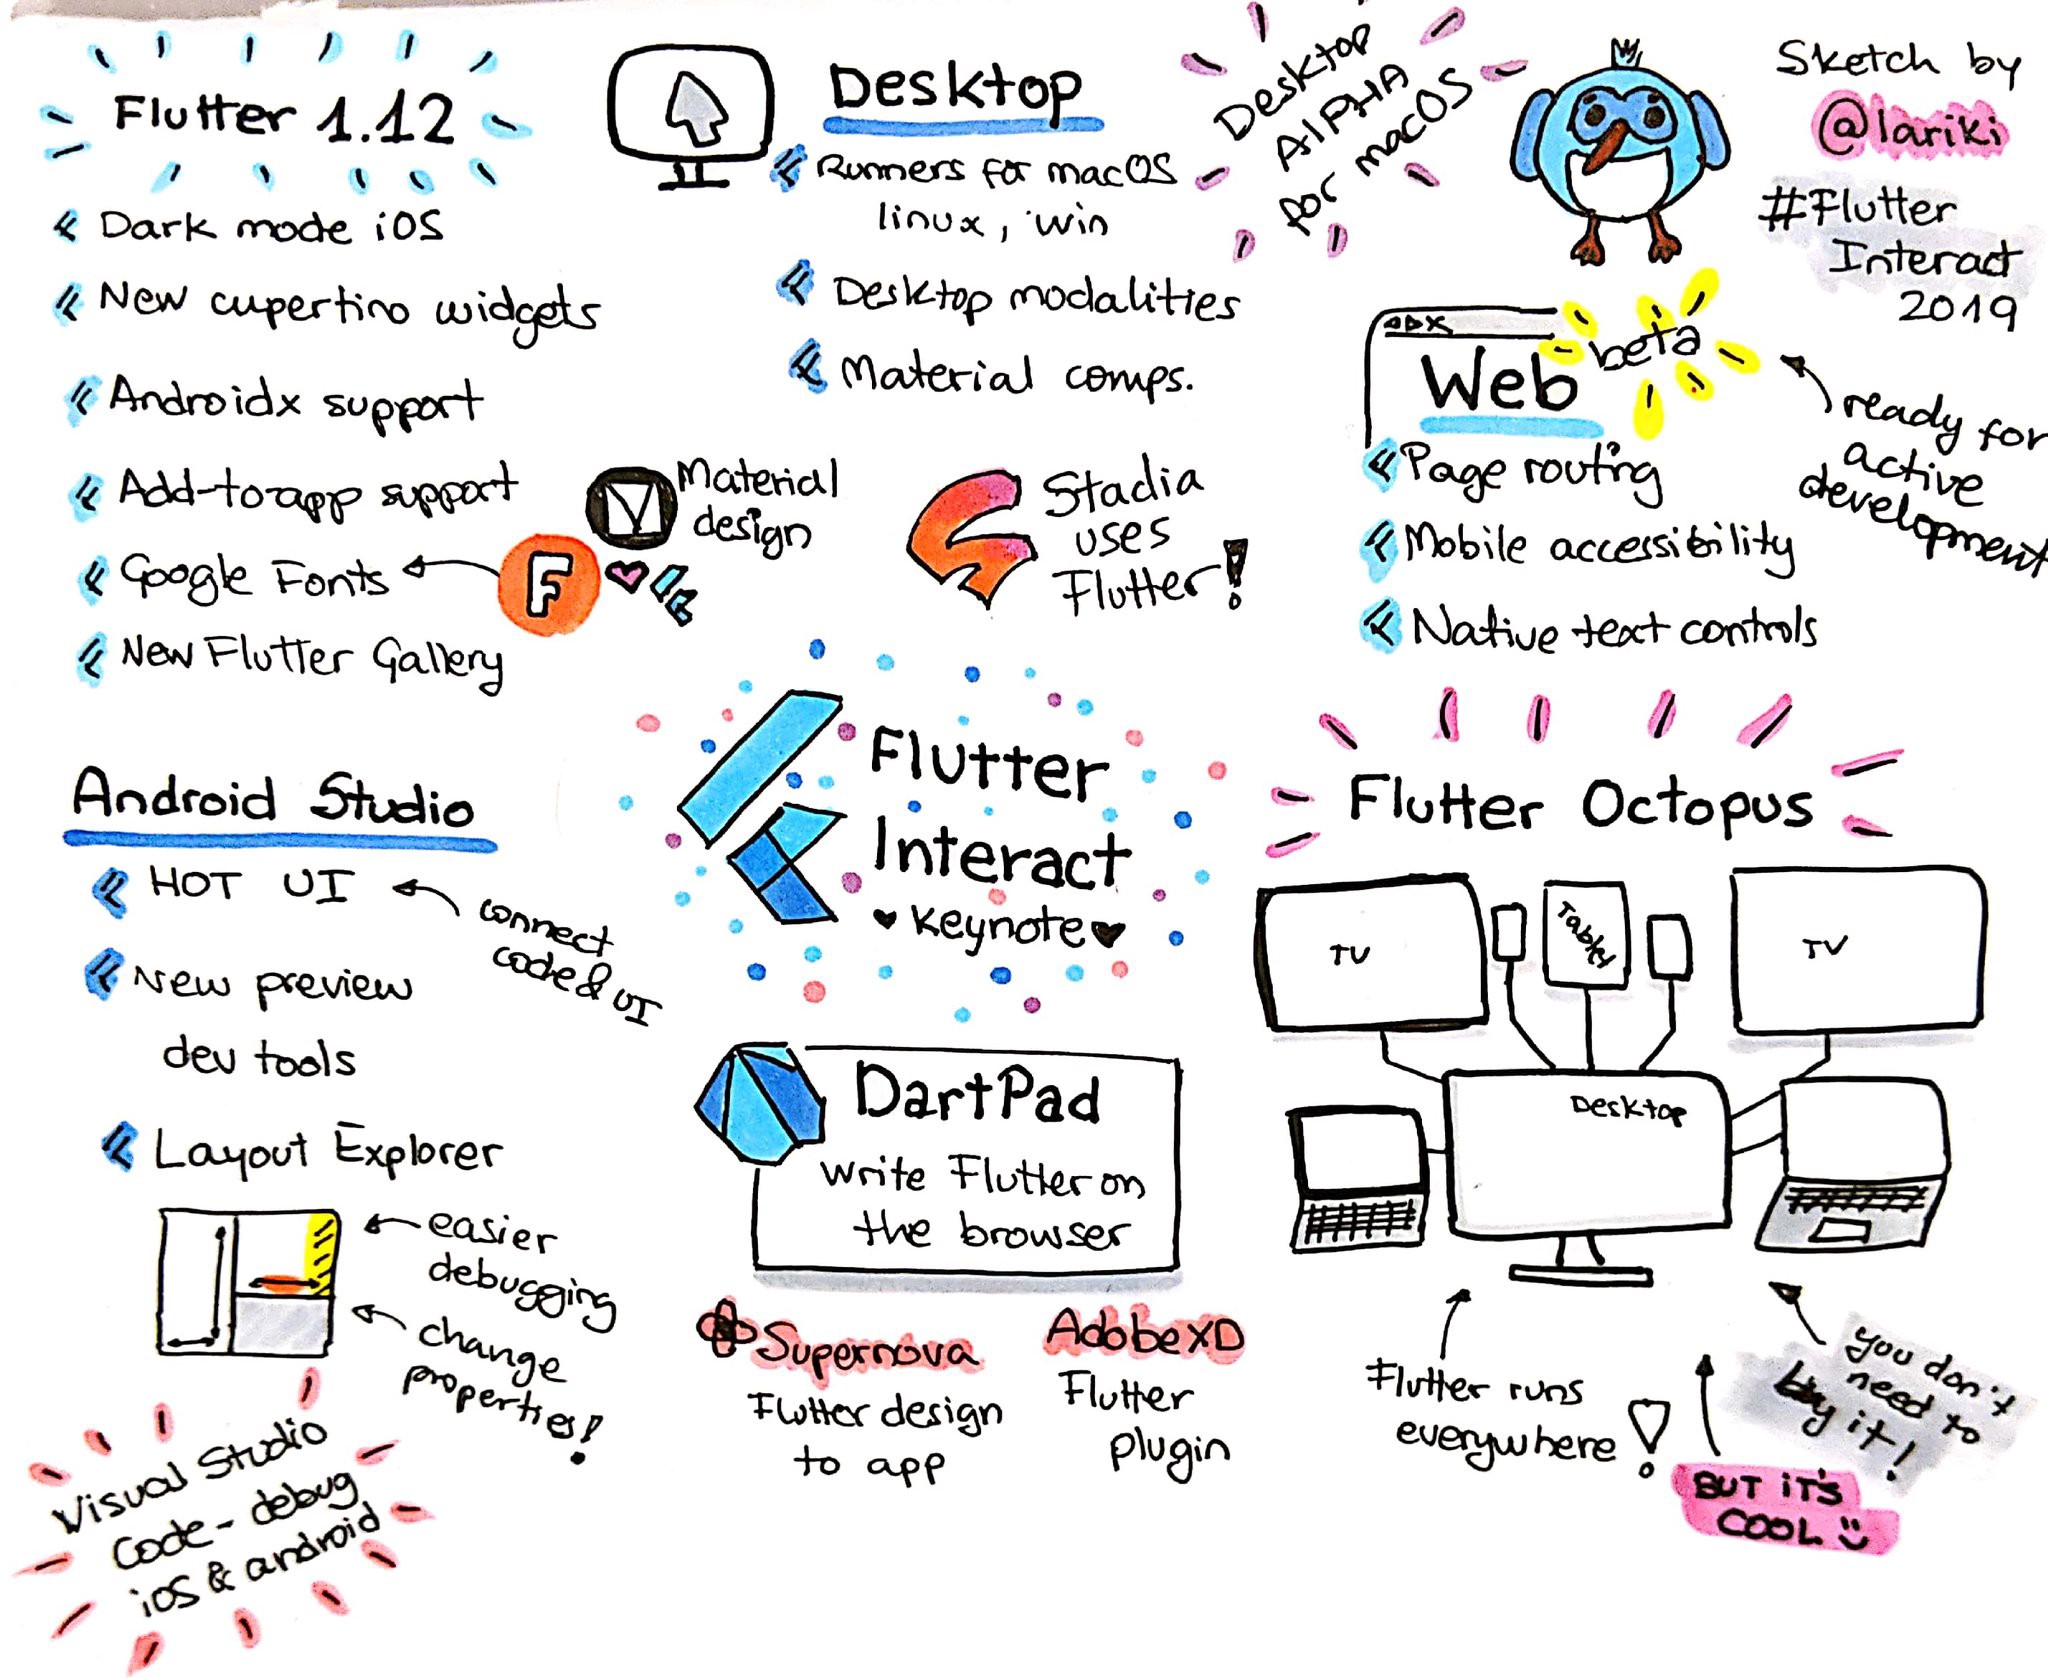 Flutter 1.12
Dark mode iOS
New cupertino widgets
Androidx support
Add-to-app support
Google Fonts
New Flutter Gallery
F
Material
design
Desktop
Runners for macOS
linux, win
Desktop modalities
Material comps.
Desktop
AlPHA
for macOS
Stadia
uses
Flutter!
Sketch by
@lariki
#Flutter
Interact
2019
Web
beta
ready for
active
development
Page routing
Mobile accessibility
Native text controls
Flutter
Interact
Keynote
Android Studio
HOT UI
connect
code & UI
New preview
dev tools
Layout Explorer
easier
debugging
change
properties!
Visual Studio
Code - debug
iOS & android
DartPad
write Flutter on
the browser
Supernova
Flutter design
to app
AdobeXD
Flutter
plugin
Flutter Octopus
TV
Tablet
TV
Desktop
Flutter runs
everywhere!
you don't
need to
buy it!
BUT iT'S
COOL